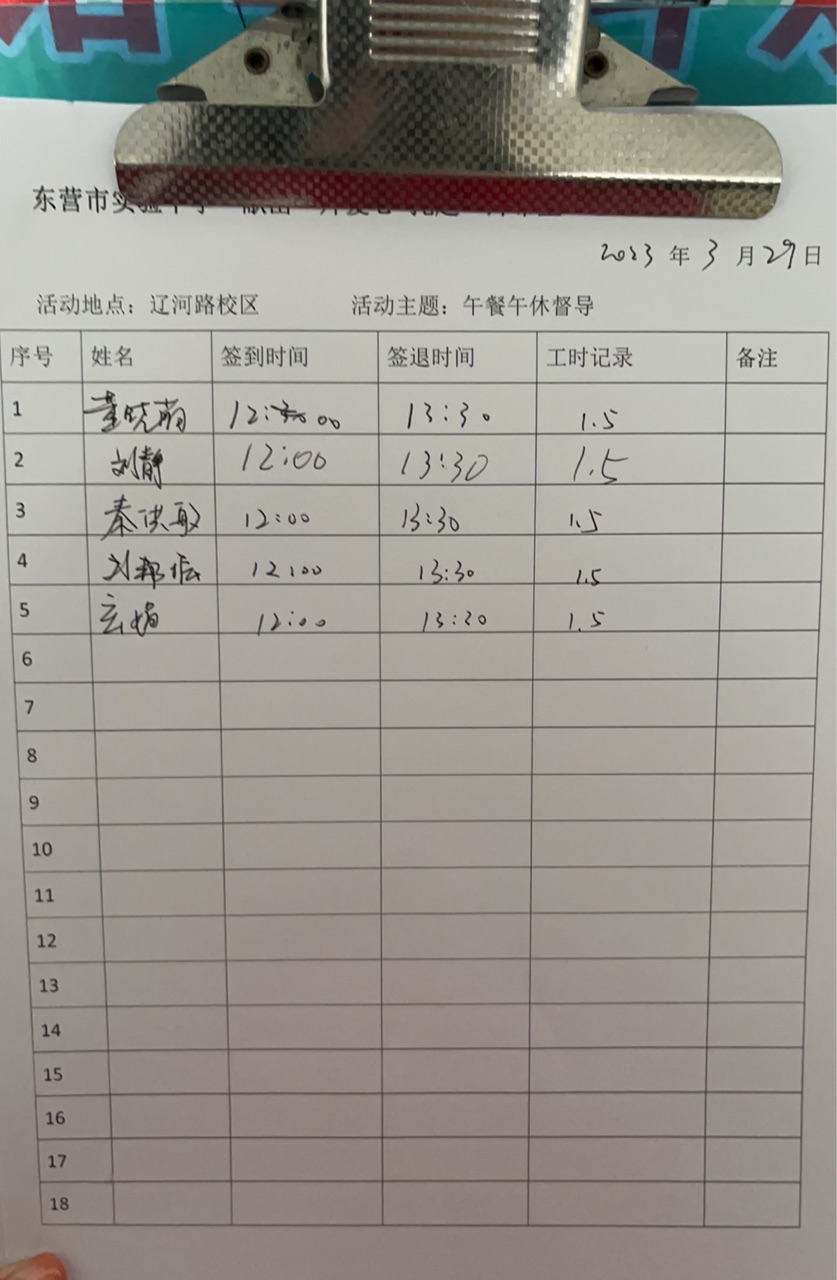 东营市实验中学
2023 年 3 月 29 日
活动地点：辽河路校区 活动主题：午餐午休督导
序号 姓名 签到时间 签退时间 工时记录 备注
1 董晓萌 12: 00 13:30 1.5
2 刘静 12:00 13:30 1.5
3 秦洪敏 12:00 13:30 1.5
4 刘邦 12:00 13:30 1.5
5 12:00 13:30 1.5
6
7
8
9
10
11
12
13
14
15
16
17
18